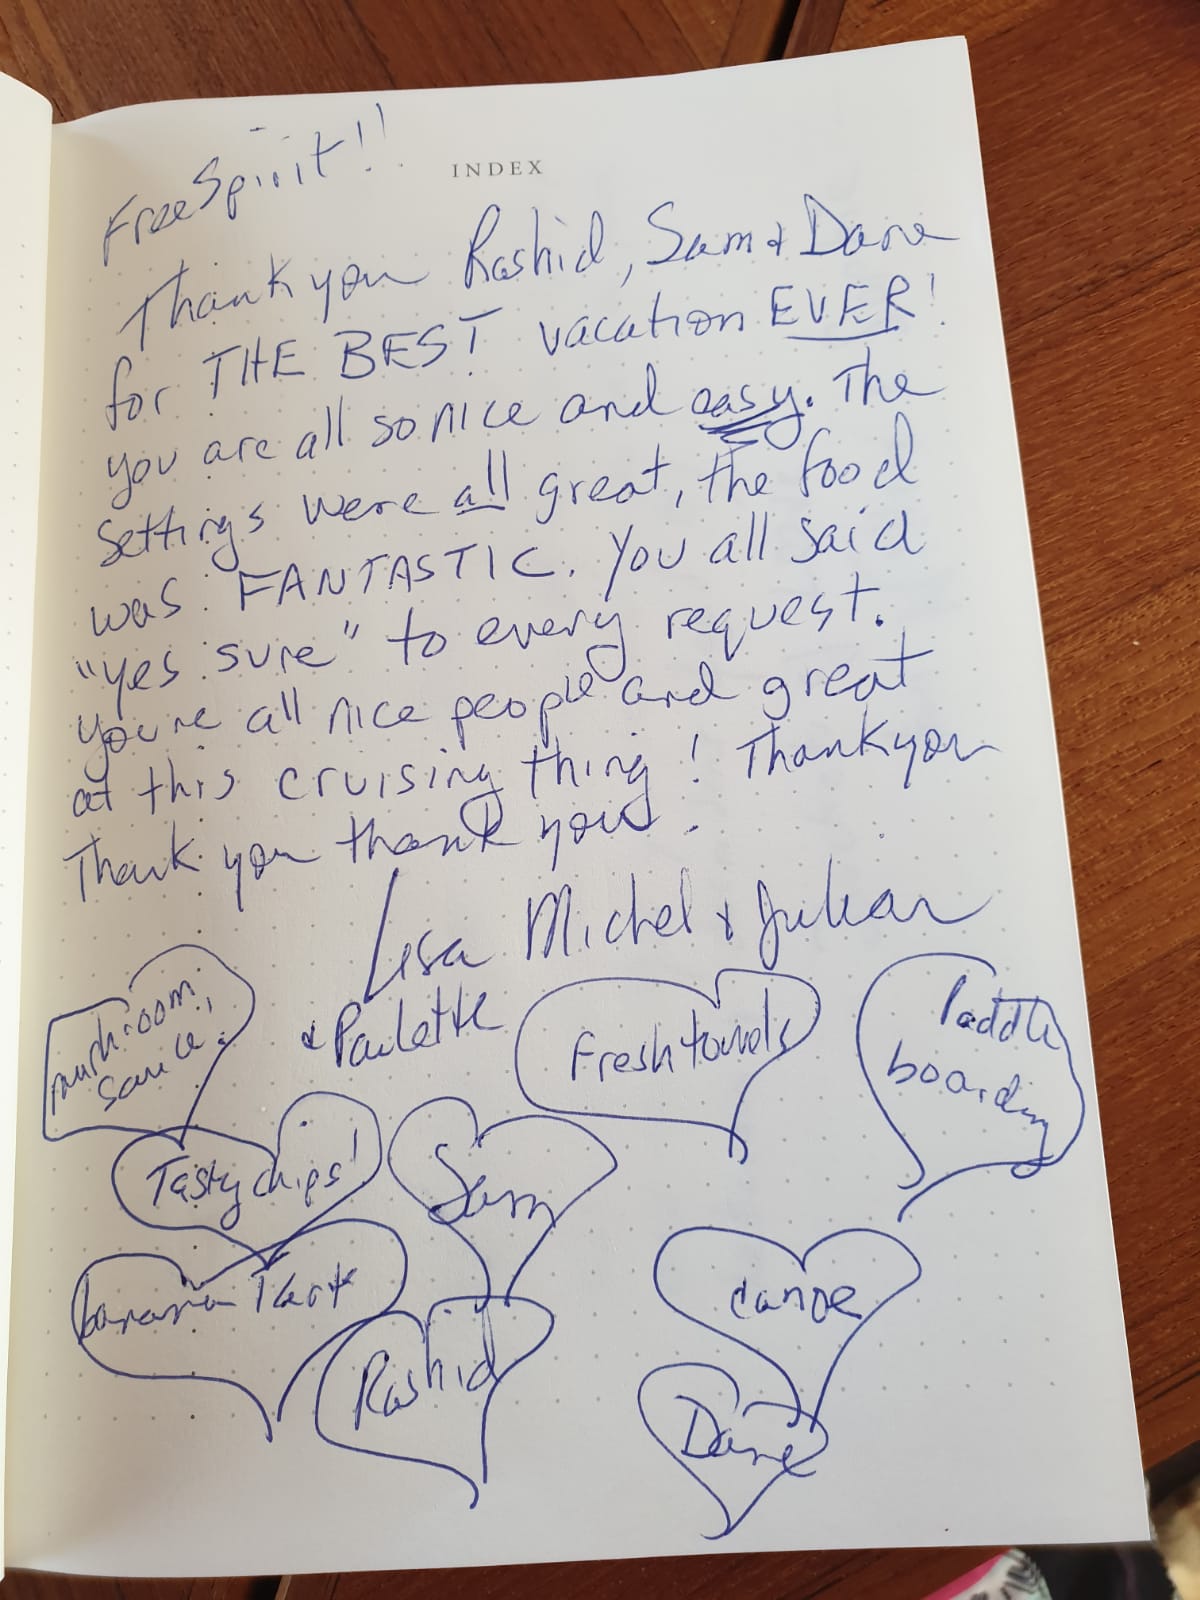 Free Spirit!!
INDEX
Thank you Rashid, Sam & Dane
for THE BEST vacation EVER!
you are all so nice and easy. The
settings were all great, the food
was FANTASTIC. You all said
"yes sure" to every request.
you're all nice people and great
at this cruising thing! Thank you
Thank you thank you.
Lisa Michel & Julian
& Paulette
mushroom
sauce
Fresh towels
Paddle
boarding
Tasty chips!
Sam
banana
canoe
Rashid
Dane